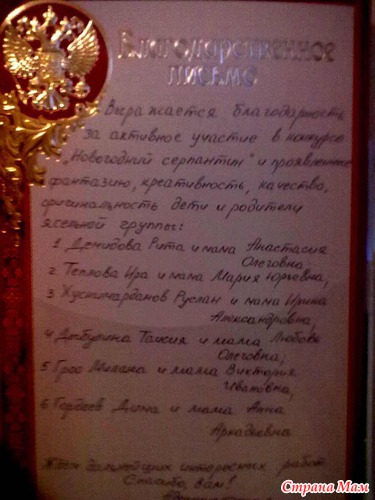 Благодарственное
письмо
Выражается благодарность
за активное участие в конкурсе
"Новогодний серпантин" и проявленные
фантазию, креативность, качество,
оригинальность дети и родители
ясельной группы:
1. Демидова Рита и мама Анастасия
Олеговна,
2. Теплова Ира и мама Мария Юрьевна,
3 Хуснимарданов Руслан и мама Ирина
Александровна,
4 Таисия и мама Любовь
Олеговна;
5 Милана и мама Виктория
Ивановна,
6 Гордеев Дима и мама Анна
Аркадьевна
Ждём дальнейших интересных работ
Спасибо, Вам!
Страна Мам